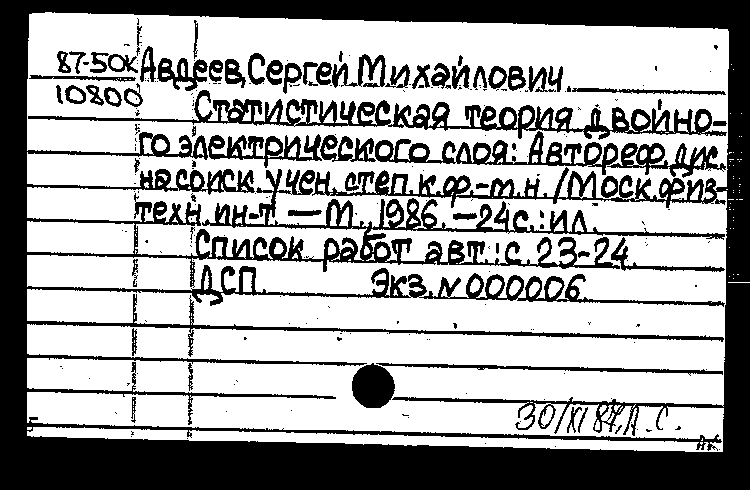 87-50к Авдеев, Сергей Михайлович.
10800 Статистическая теория двойно-
го электрического слоя: Автореф. дис.
на соиск. учен. степ. к.ф.-м.н. / Моск. физ-
техн. ин-т. — М., 1986. — 24с.: ил.
Список работ авт.: с. 23-24.
ДСП. Экз. № 000006
30/XI 87, А.С.